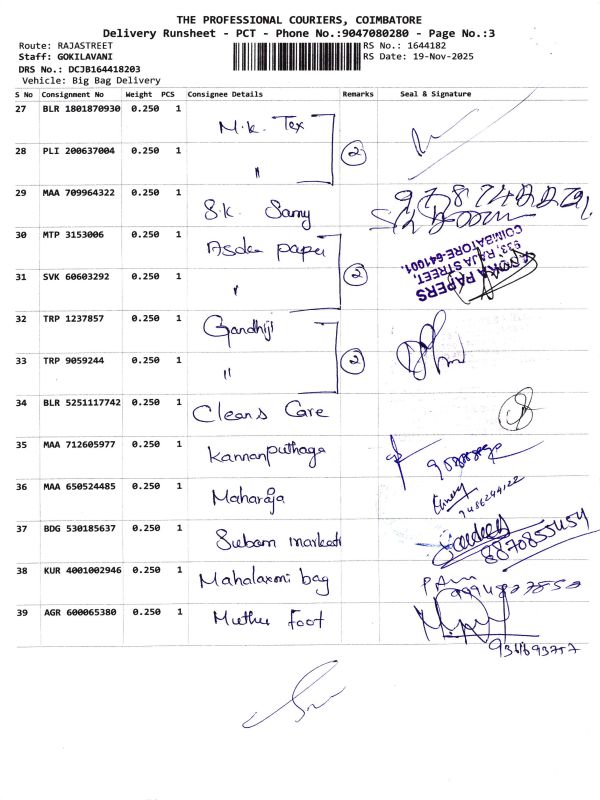 THE PROFESSIONAL COURIERS, COIMBATORE
Delivery Runsheet - PCT - Phone No.:9047080280 - Page No.:3
Route: RAJASTREET
RS No.: 1644182
Staff: GOKILAVANI
RS Date: 19-Nov-2025
DRS No.: DCJB164418203
Vehicle: Big Bag Delivery
S No Consignment No Weight PCS Consignee Details Remarks Seal & Signature
27 BLR 1801870930 0.250 1 M.K. Tex
28 PLI 200637004 0.250 1 " 2
29 MAA 709964322 0.250 1 S.K. Samy
30 MTP 3153006 0.250 1 Asoka paper
31 SVK 60603292 0.250 1 " 2
ASOKA PAPERS
953, RAJA STREET,
COIMBATORE-641001.
32 TRP 1237857 0.250 1 Gandhiji
33 TRP 9059244 0.250 1 " 2
34 BLR 5251117742 0.250 1 Cleans Care
35 MAA 712605977 0.250 1 Kannanputhaga
36 MAA 650524485 0.250 1 Maharaja
37 BDG 530185637 0.250 1 Subam marketi
8870855454
38 KUR 4001002946 0.250 1 Mahalaxmi bag
39 AGR 600065380 0.250 1 Muthu Foot